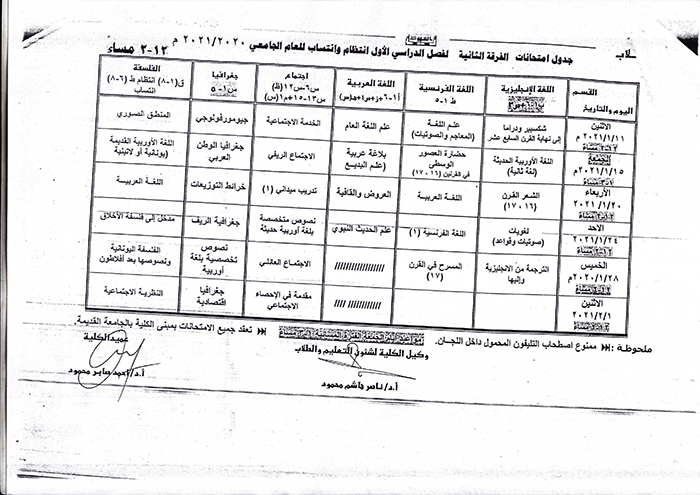 ـلاب
جدول امتحانات الفرقة الثانية لفصل الدراسي الأول انتظام وانتساب للعام الجامعي ٢٠٢١/٢٠٢٠ م
١٢-٢ مساء
القسم
اليوم والتاريخ
اللغة الإنجليزية
اللغة الفرنسية
ط ١-٥
اللغة العربية
اجتماع
س٦-س١٢(ظ)
جغرافيا
س١-٥
الفلسفة
ق(١-٨) انتظام ط (٦-٨)
انتساب
الاثنين
٢٠٢١/١/١١
شكسبير ودراما
إلى نهاية القرن السابع عشر
علم اللغة
(المعاجم والصوتيات)
علم اللغة العام
الخدمة الاجتماعية
جيومورفولوجي
المنطق الصوري
الجمعة
٢٠٢١/١/١٥م
اللغة الأوربية الحديثة
(لغة ثانية)
حضارة العصور
الوسطى
في القرنين (١٧،١٦)
بلاغة عربية
(علم البديع)
الاجتماع الريفي
جغرافيا الوطن
العربي
اللغة الأوربية القديمة
(يونانية أو لاتينية
الأربعاء
٢٠٢١/١/٢٠
الشعر القرن
(١٧،١٦)
اللغة العربية
العروض والقافية
تدريب ميداني (١)
خرائط التوزيعات
اللغة العربية
الاحد
٢٠٢١/١/٢٤
لغويات
(صوتيات وقواعد)
اللغة الفرنسية (١)
علم الحديث النبوي
نصوص متخصصة
بلغة أوربية حديثة
جغرافية الريف
مدخل إلى فلسفة الأخلاق
الخميس
٢٠٢٠/١/٢٨م
الترجمة من الانجليزية
وإليها
المسرح في القرن
(١٧)
////////////
الاجتماع العائلي
نصوص
تخصصية بلغة
أوربية
الفلسفة اليونانية
ونصوصها بعد أفلاطون
الاثنين
٢٠٢١/٢/١
//// ///////////
مقدمة في الإحصاء
الاجتماعي
جغرافيا
اقتصادية
النظرية الاجتماعية
ملحوظة: ممنوع اصطحاب التليفون المحمول داخل اللجان.
تعقد جميع الامتحانات بمبنى الكلية بالجامعة القديمة.
وكيل الكلية لشئون التعليم والطلاب
أ.د/ناصر هاشم محمود
عميد الكلية
أ.د/أحمد صابر محمود